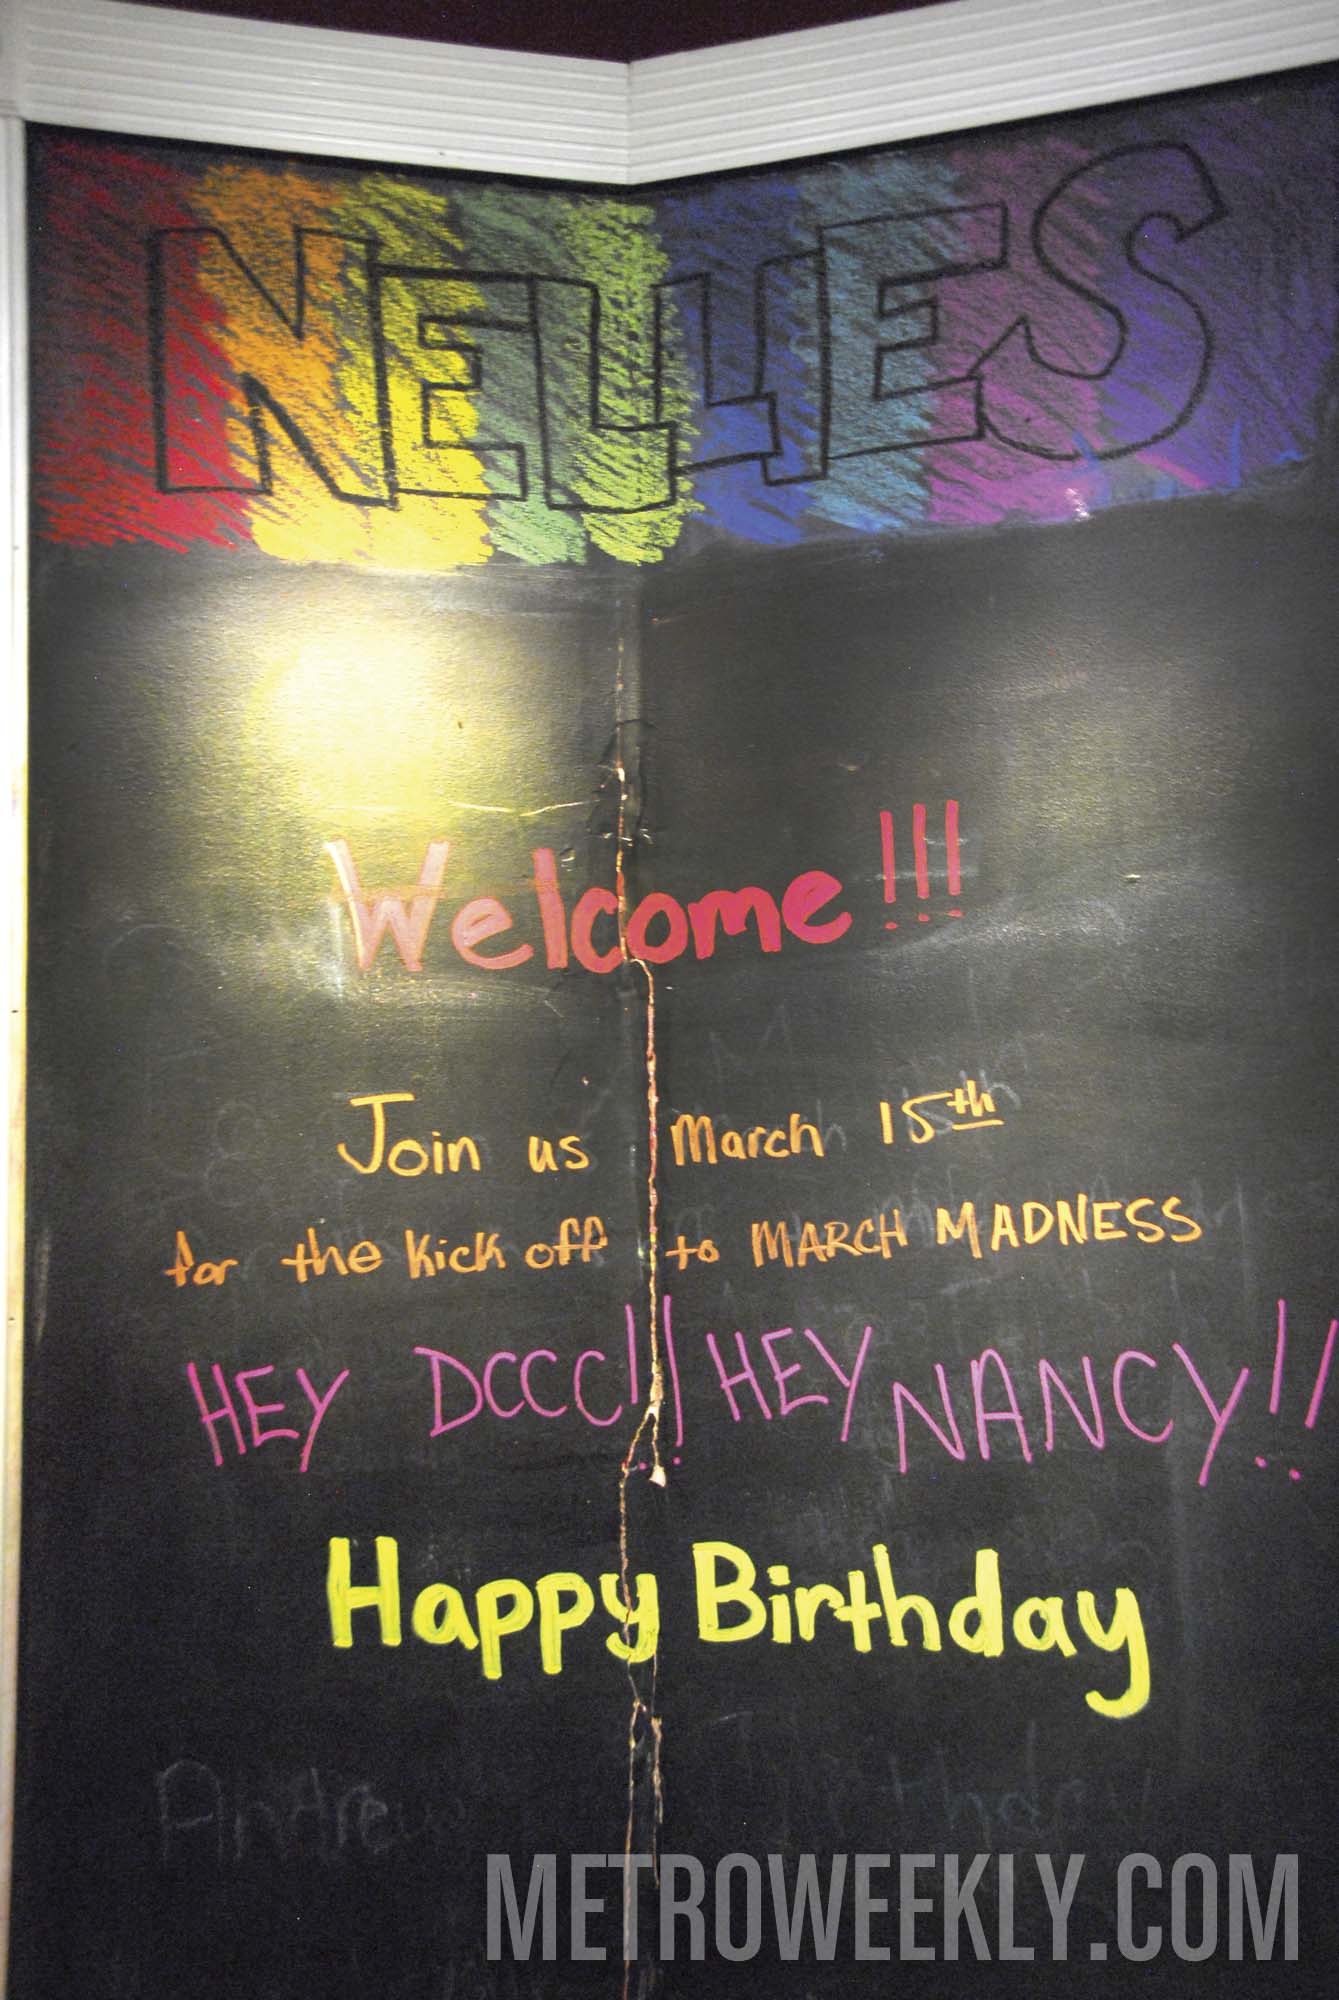 NELLIES
Welcome!!!
Join us March 15th
for the kick off to MARCH MADNESS
HEY DCCC!! HEY NANCY!!
Happy Birthday
Andrew
METROWEEKLY.COM